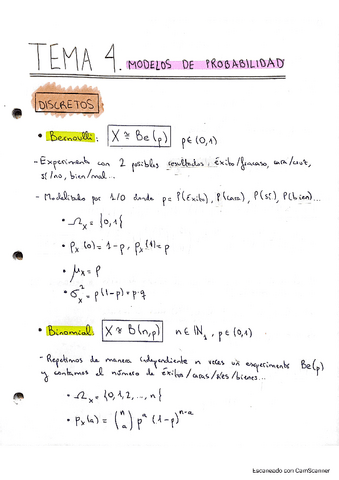 TEMA 4. MODELOS DE PROBABILIDAD
DISCRETOS
• Bernoulli: X ≅ Be(p) p∈(0,1)
- Experimento con 2 posibles resultados: éxito/fracaso, cara/cruz,
sí/no, bien/mal...
- Modelizado por 1/0 donde p = P(éxito), P(cara), P(sí), P(bien)...
• Ω_X = {0,1}
• P_X(0) = 1-p, P_X(1) = p
• μ_X = p
• σ²_X = p(1-p) = p·q
• Binomial: X ≅ B(n,p) n∈ℕ, p∈(0,1)
- Repetimos de manera independiente n veces un experimento Be(p)
y contamos el número de éxitos/caras/síes/bienes...
• Ω_X = {0,1,2,...,n}
• P_X(a) = (n a) p^a (1-p)^{n-a}
Escaneado con CamScanner